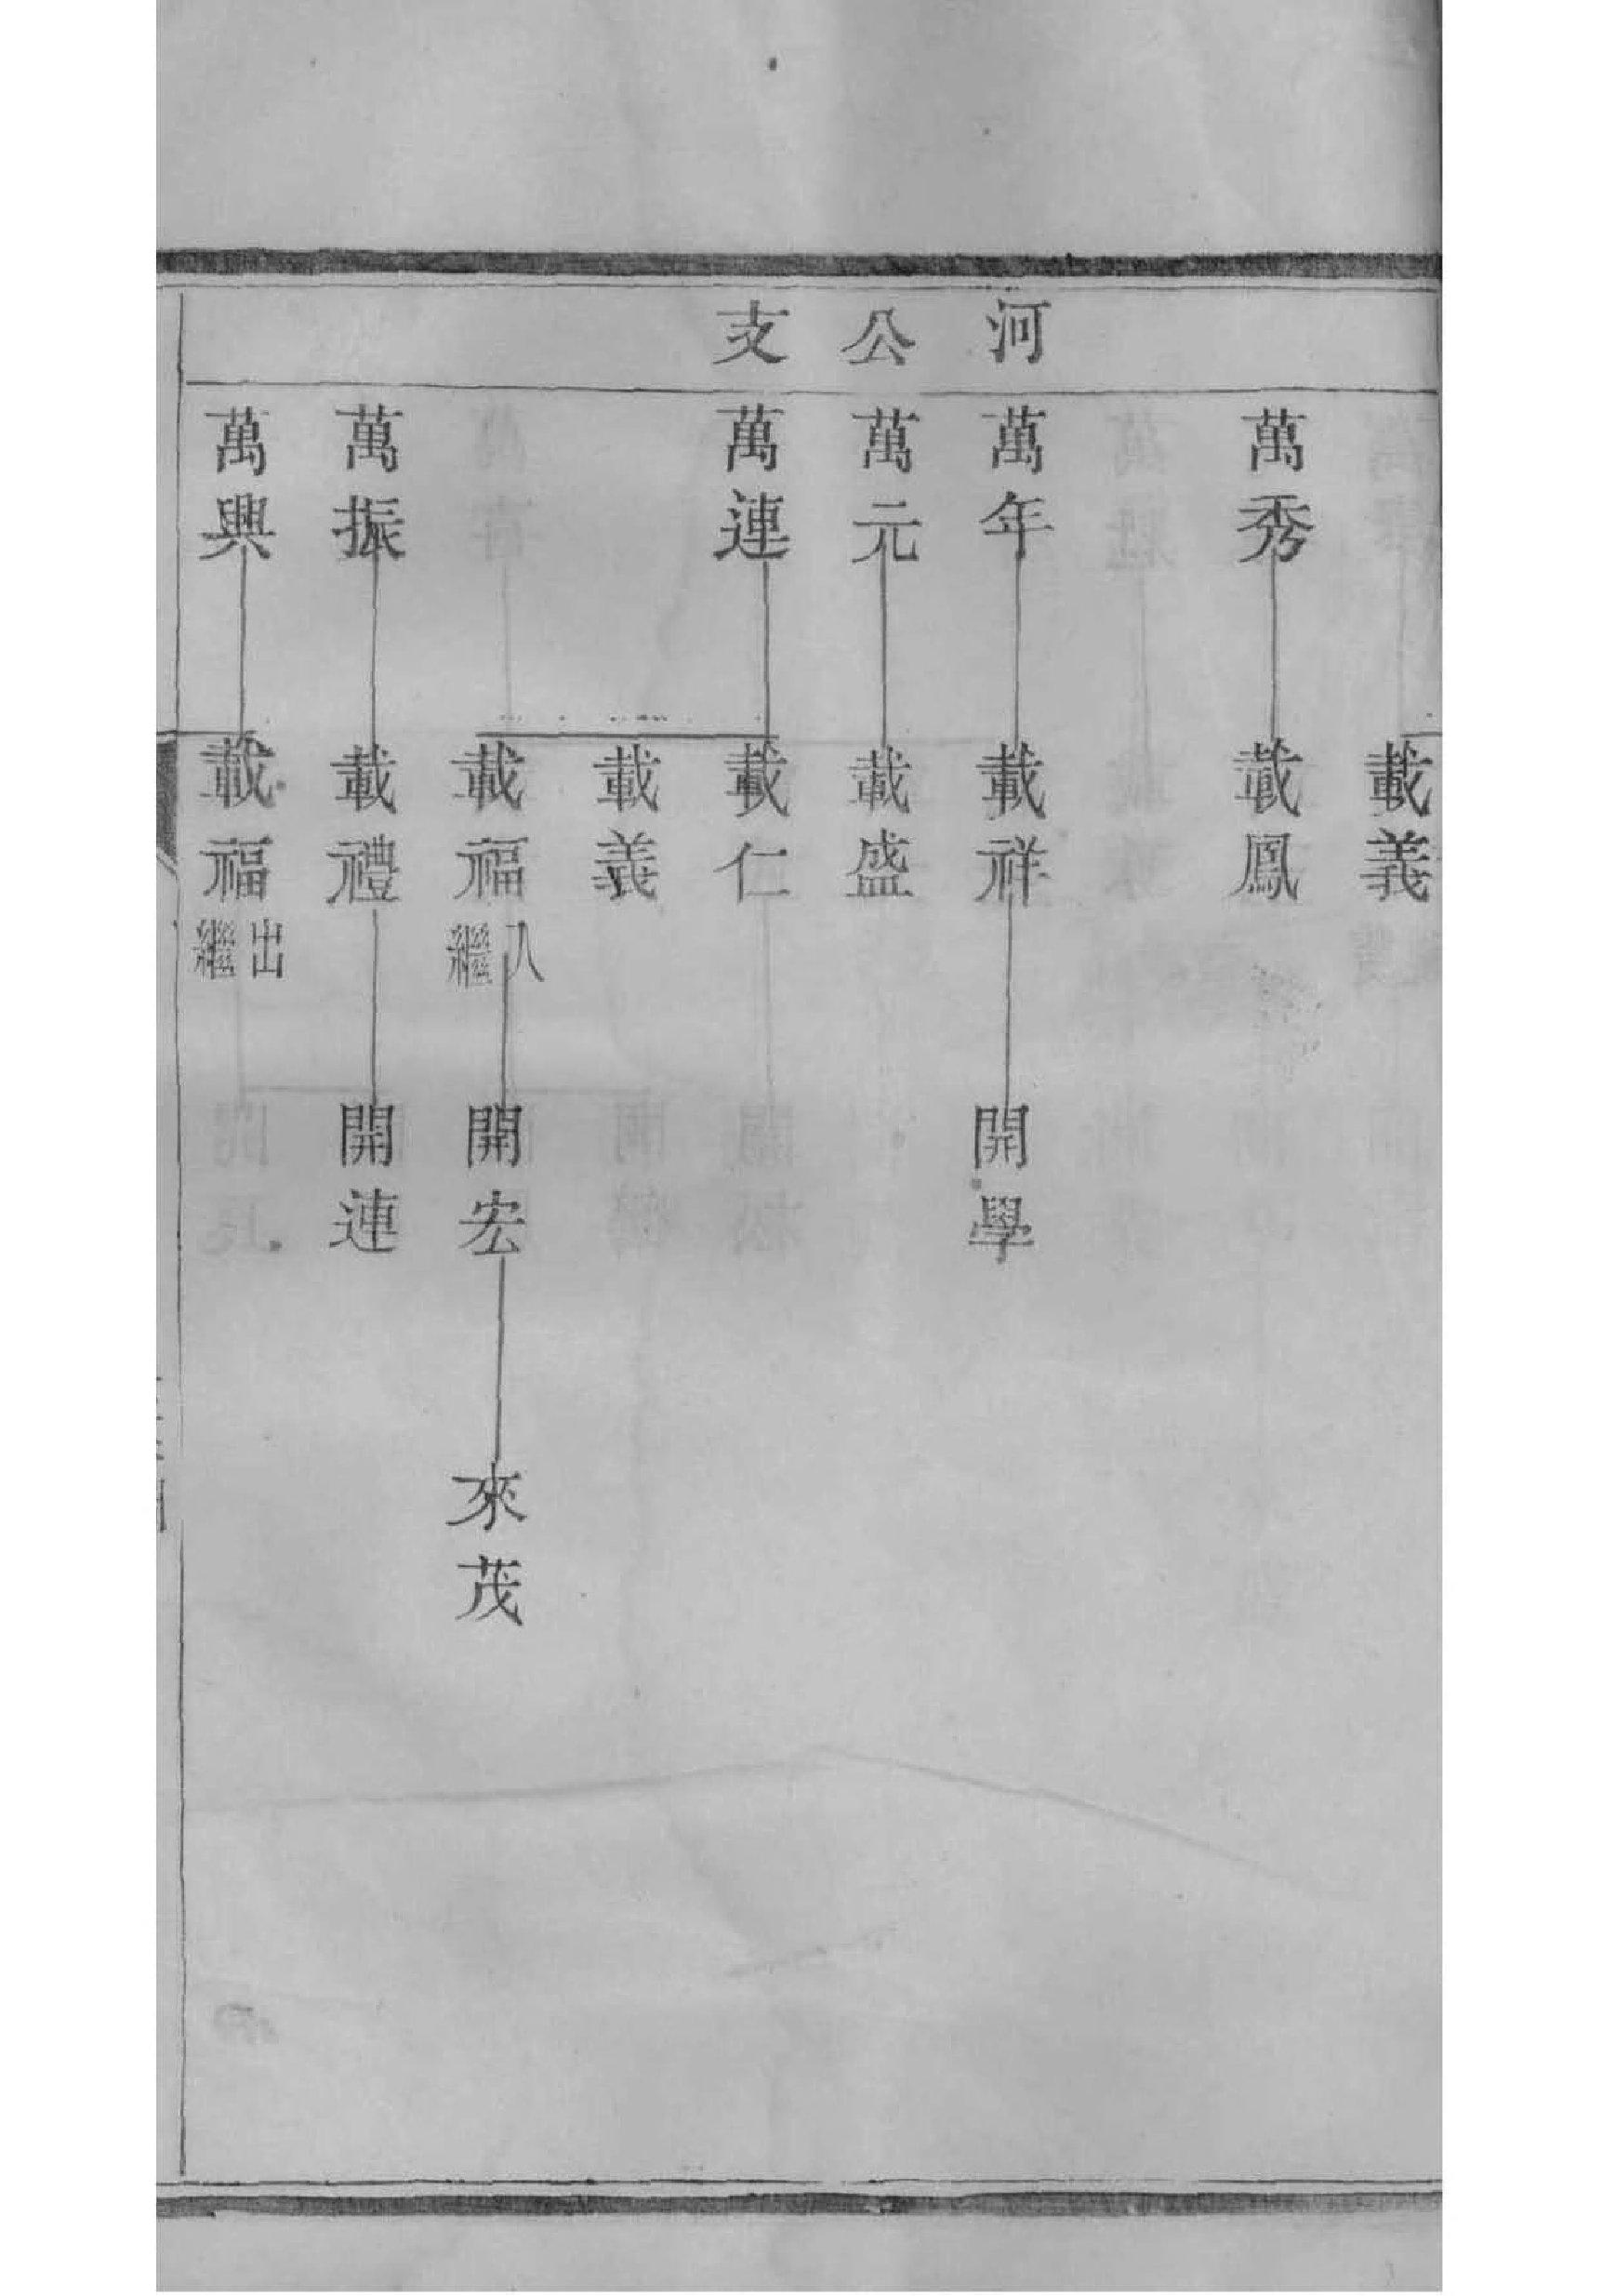 河公支
載義
萬秀 載鳳
萬年 載祥 開學
萬元 載盛
萬連 載仁
載義
載福 入繼 開宏 來茂
萬振 載禮 開連
萬興 載福 出繼